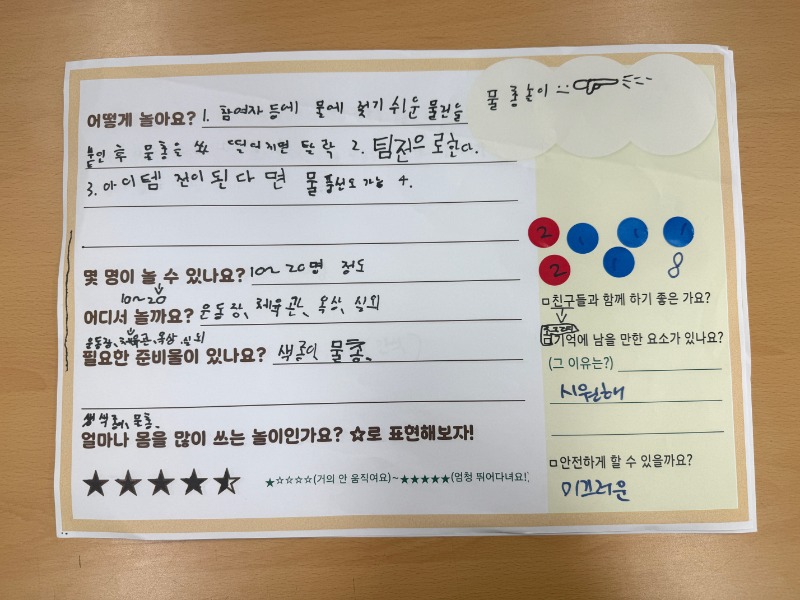 물총놀이
어떻게 놀아요? 1. 참여자 등에 물에 젖기 쉬운 물건을
붙인 후 물총을 쏴 떨어지면 탈락 2. 팀전으로한다.
3. 아이템 전이 된다면 물풍선도 가능 4.
몇 명이 놀 수 있나요? 10~20명 정도
10~20
어디서 놀까요? 운동장, 체육관, 옥상, 실외
운동장, 체육관, 옥상, 실외
필요한 준비물이 있나요? 색종이 물총.
색종이, 물총.
얼마나 몸을 많이 쓰는 놀이인가요? ☆로 표현해보자!
★☆☆☆☆(거의 안 움직여요)~★★★★★(엄청 뛰어다녀요!)
2 1 1 1
2 1 8
□친구들과 함께 하기 좋은 가요?
□기억에 남을 만한 요소가 있나요?
(그 이유는?)
시원해
□안전하게 할 수 있을까요?
미끄러운